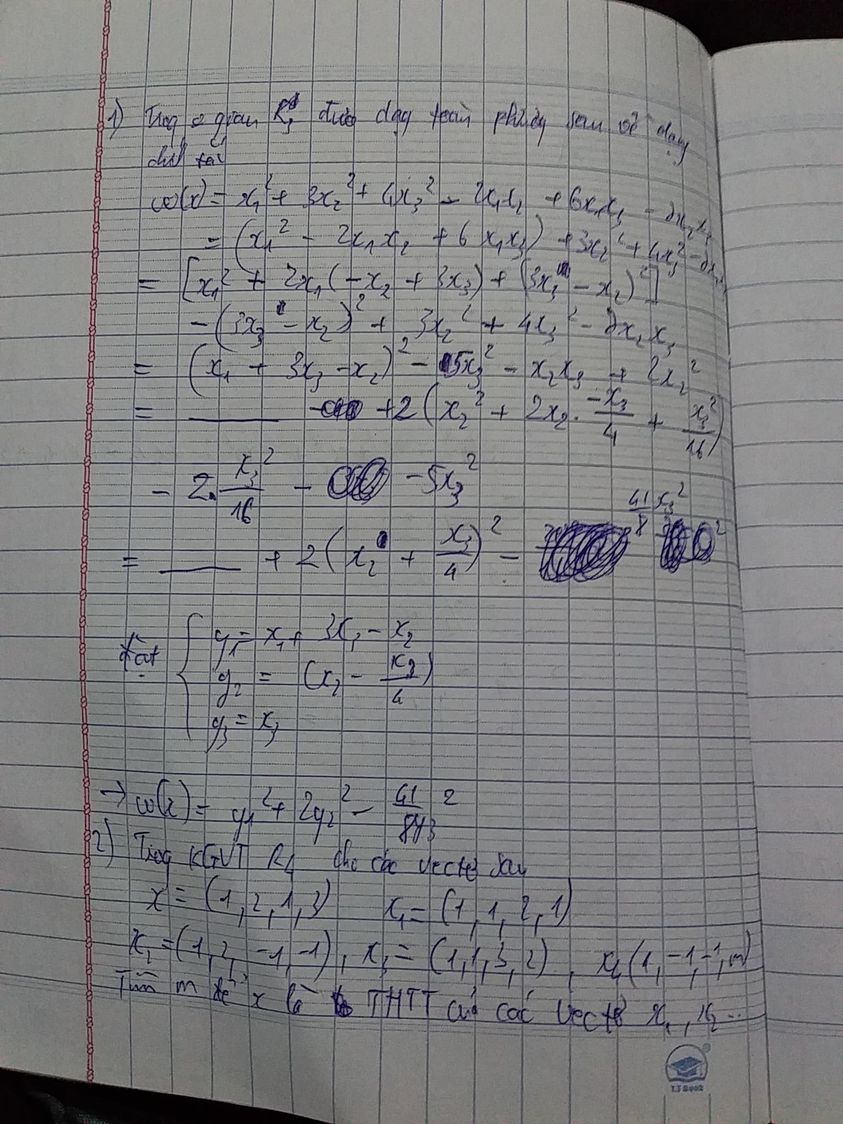 1) Trog o gian R3 đưa dạg toàn phươg sau về dạng
chính tắc
ω(x) = x₁² + 3x₂² + 4x₃² - 2x₁x₂ + 6x₁x₃ - x₂x₃
= (x₁² - 2x₁x₂ + 6x₁x₃) + 3x₂² + 4x₃² - x₂x₃
= [x₁² + 2x₁(-x₂ + 3x₃) + (3x₃ - x₂)²]
- (3x₃ - x₂)² + 3x₂² + 4x₃² - x₂x₃
= (x₁ + 3x₃ - x₂)² - 5x₃² - x₂x₃ + 2x₂²
= ——— + 2(x₂² + 2x₂ · -x₃/4 + x₃²/16)
- 2 · x₃²/16 - 5x₃²
= ——— + 2(x₂ + x₃/4)² - 41/8 x₃²
Đặt { y₁ = x₁ + 3x₃ - x₂
y₂ = (x₂ - x₃/4)
y₃ = x₃
→ ω(x) = y₁² + 2y₂² - 41/8 y₃²
2) Trog KGVT R4 cho các vectơ sau
x = (1, 2, 1, 3) x₁ = (1, 1, 2, 1)
x₂ = (1, 2, -1, -1), x₃ = (1, 1, 3, 2), x₄ (1, -1, -1, m)
Tìm m để x là THTT của các vectơ x₁, x₂ ...
T.T Book